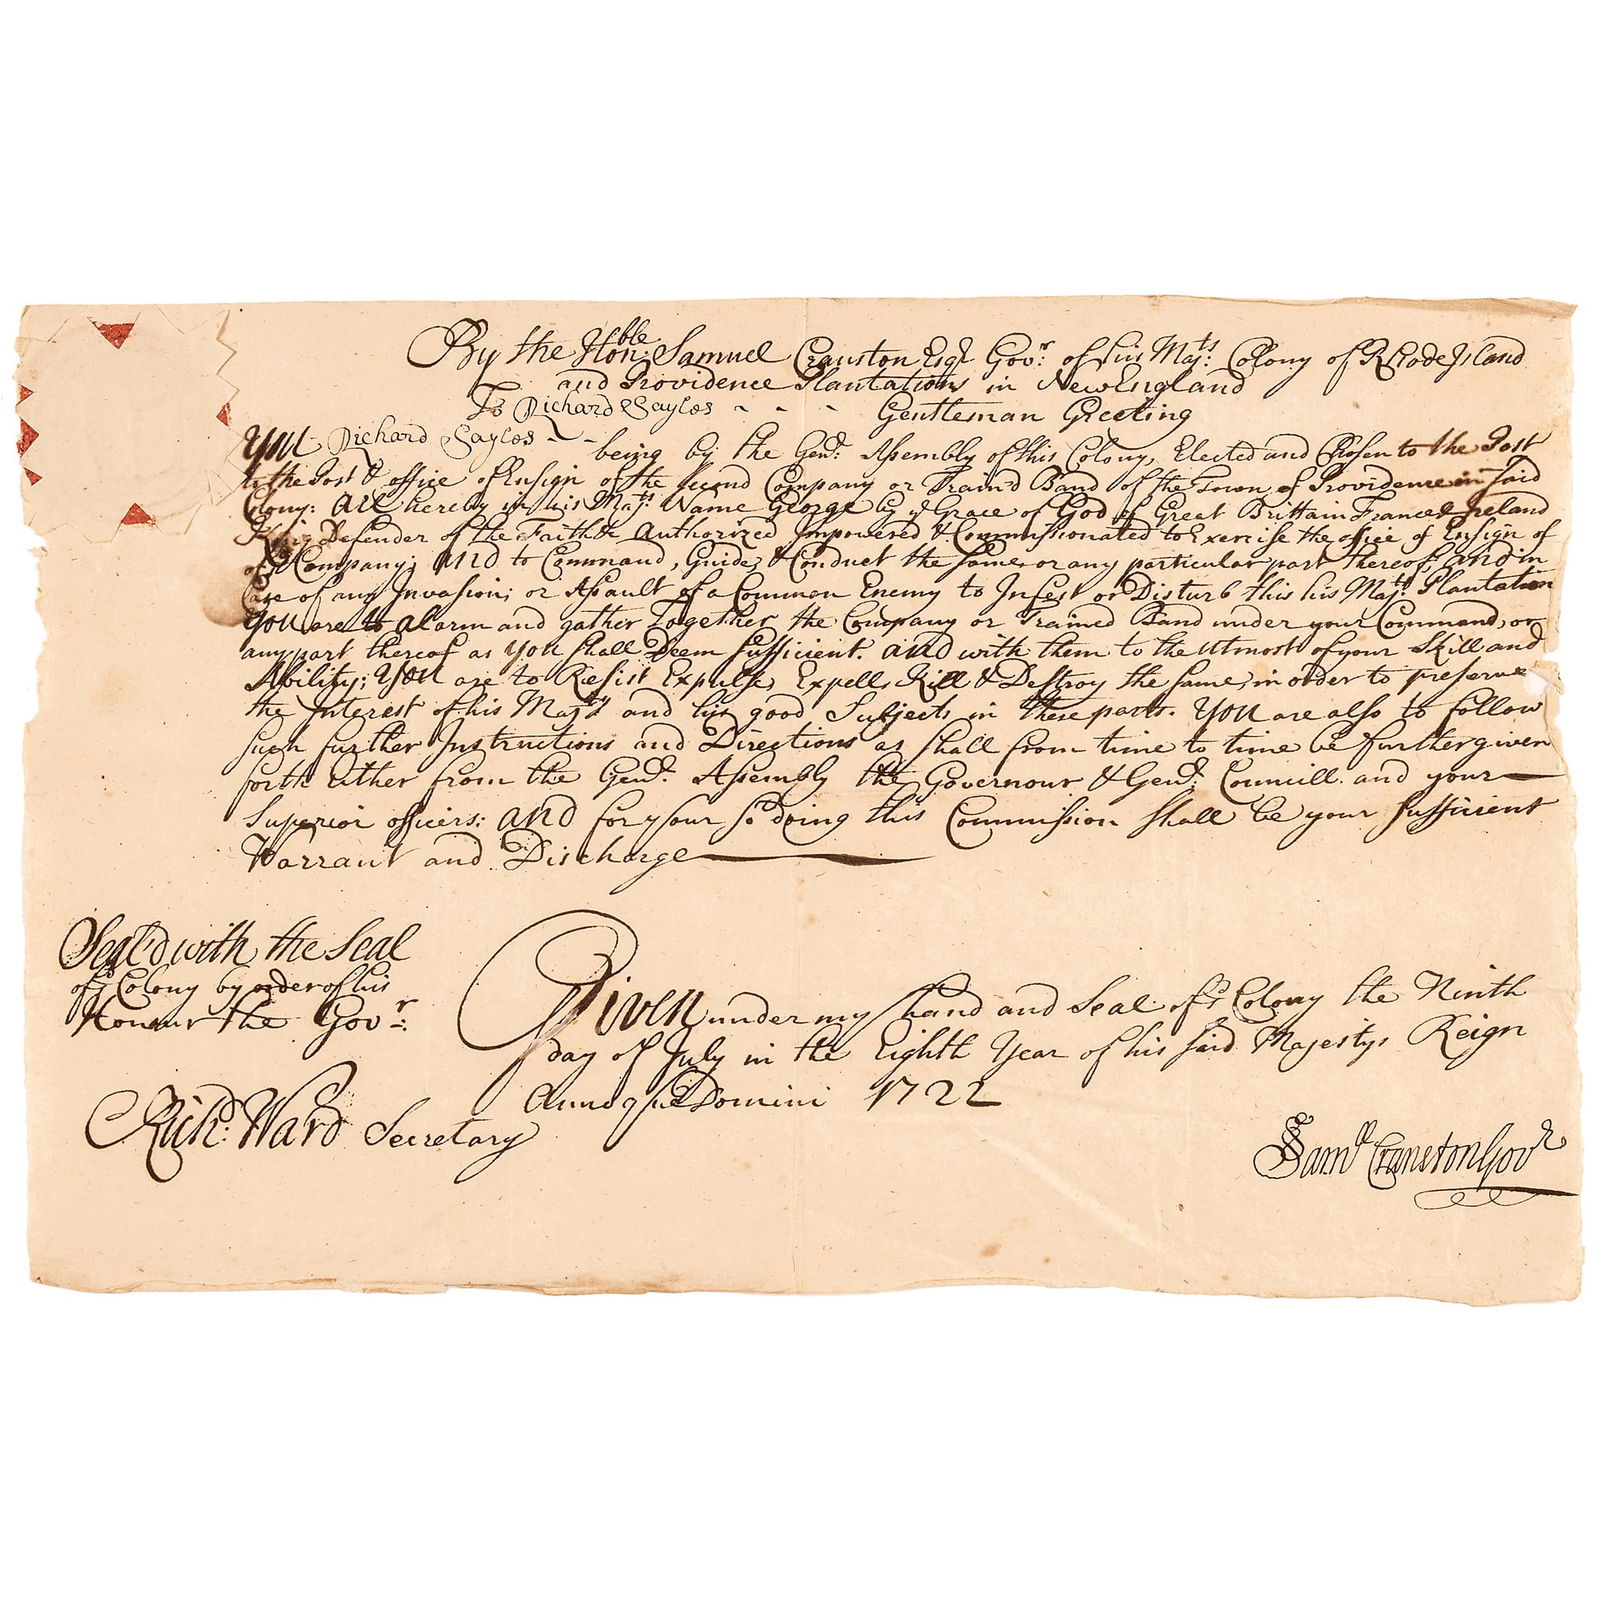 By the Hon:ble Samuel Cranston Esqr Govr: of his Majts: Colony of Rhode Island
and Providence Plantations in New England
To Richard Sayles - - - Gentleman Greeting
You Richard Sayles - - being by the Genll: Assembly of this Colony, Elected and Chosen to the Post
to the Post & office of Ensign of the Second Company or Train'd Band of the Town of Providence in Said
Colony: are hereby in his Majts: Name George by ye Grace of God of Great Brittain France & Ireland
King Defender of the Faith &c Authorized Impowered & Commissionated to Exercise the office of Ensign of
of sd Company; And to Command, Guide, & Conduct the Same or any particular part thereof, And in
Case of any Invasion; or Assault of a Common Enemy to Infest or Disturb this his Majts: Plantation
You are to alarm and gather Together the Company or Trained Band under your Command, or
any part thereof as You Shall Deem Sufficient. And with them to the utmost of your Skill and
Ability; You are to Resist Expulse, Expell, Kill & Destroy the Same, in order to preserve
the Interest of his Majty and his good Subjects in these parts. You are also to follow
Such further Instructions and Directions as shall from time to time be further given
forth Either from the Genll: Assembly the Governour & Genll: Councill and your
Superior officers: And for your so doing this Commission shall be your Sufficient
Warrant and Discharge
Seal'd with the Seal
of sd Colony by order of his
Honour the Govr:
Given under my hand and Seal of sd Colony the Ninth
day of July in the Eighth Year of his said Majestys Reign
Annoque Domini 1722
Richd: Ward Secretary
Samll Cranston Govr